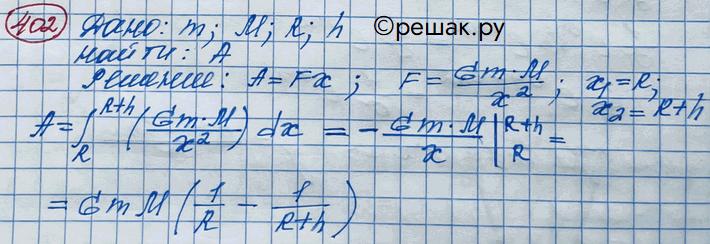 402 Дано: m; M; R; h ©решак.ру
найти: A
Решение: A=Fx; F=Gm·M/x²; x₁=R;
x₂=R+h
A=∫_R^{R+h} (Gm·M/x²) dx = -Gm·M/x |_R^{R+h} =
= GmM (1/R - 1/(R+h))